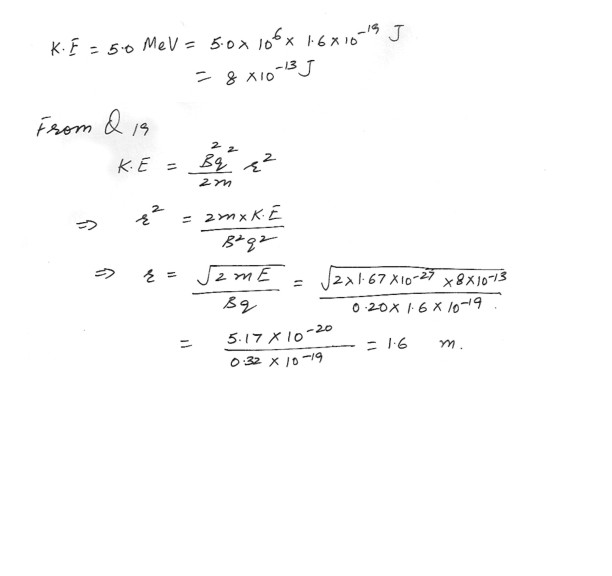 K.E = 5.0 MeV = 5.0 x 10⁶ x 1.6 x 10⁻¹⁹ J
= 8 x 10⁻¹³ J
From Q 19
K.E = B²q²/2m r²
⇒ r² = 2m x K.E / B²q²
⇒ r = √2mE / Bq = √2 x 1.67 x 10⁻²⁷ x 8 x 10⁻¹³ / 0.20 x 1.6 x 10⁻¹⁹.
= 5.17 x 10⁻²⁰ / 0.32 x 10⁻¹⁹ = 1.6 m.